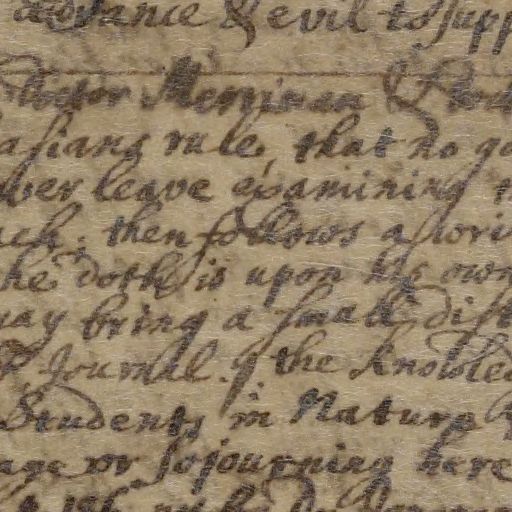 advance & evil is supp
Doctor Merriman &
asians rule, that no go
ver leave examining
ach: then follows a wri
he doth is upon his own
may bring a small dist
Journal. of the knowled
Students in Nature
age or sojourning here